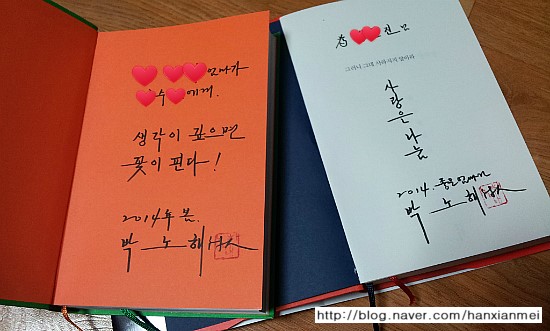 엄마가
수 에게.
생각이 깊으면
꽃이 핀다!
2014年 봄.
박 노 해
為 진 님
그러니 그대 사라지지 말아라
사랑은 나눔
2014.
박 노 해
http://blog.naver.com/hanxianmei